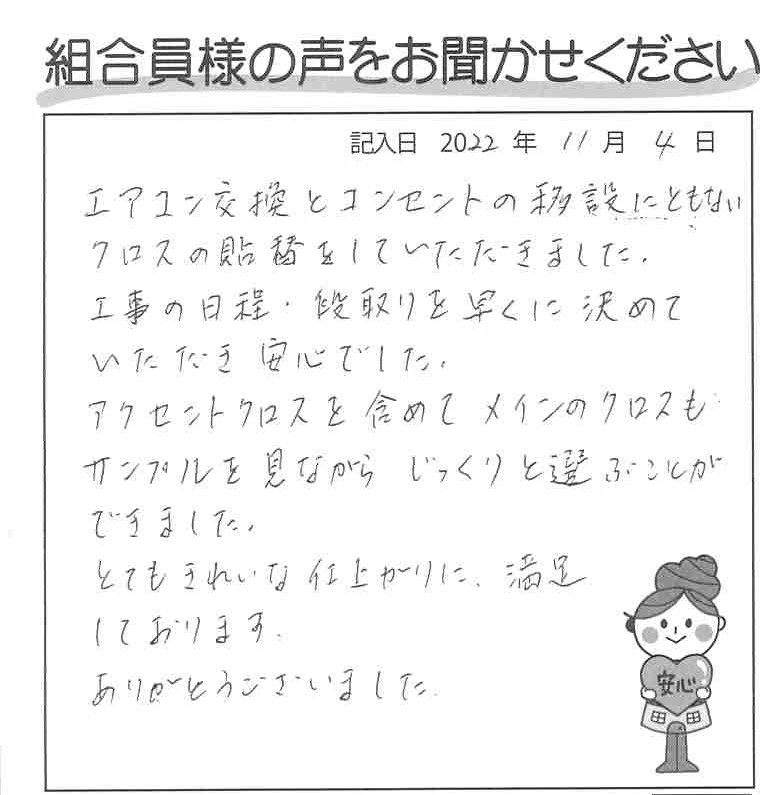 組合員様の声をお聞かせください
記入日 2022 年 11 月 4 日
エアコン交換とコンセントの移設にともない
クロスの貼替をしていただきました。
工事の日程・段取りを早くに決めて
いただき安心でした。
アクセントクロスを含めてメインのクロスも
サンプルを見ながらじっくりと選ぶことが
できました。
とてもきれいな仕上がりに、満足
しております。
ありがとうございました。
安心